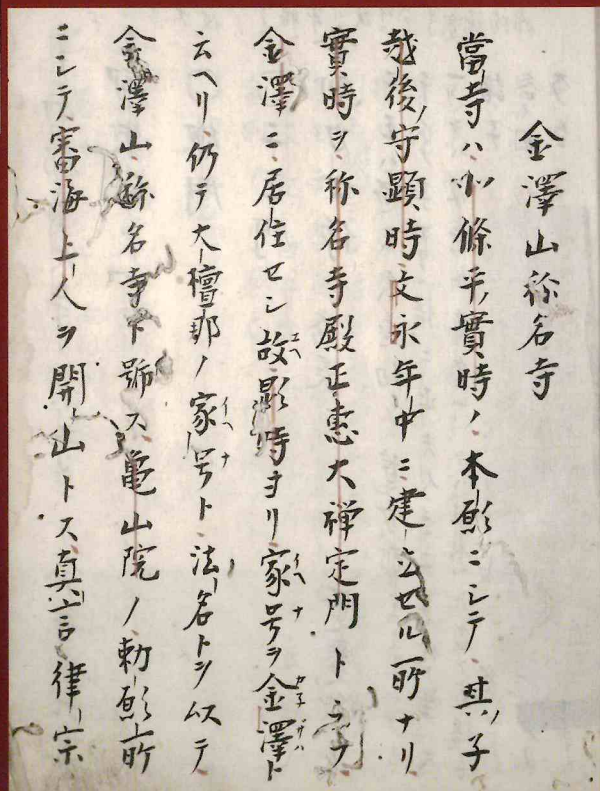 金澤山称名寺
當寺ハ北條平ノ實時ノ本願ニシテ其ノ子
越後ノ守顕時文永年中ニ建立セル所ナリ
實時ヲ称名寺殿正恵大禅定門ト云フ
金澤ニ居住セシ故ヱヘ顕時ヨリ家イヘ号ナヲ金カネ澤サハト
云ヘリ仍テ大檀那ノ家イヘ号ナト法名トヲ以テ
金澤山称名寺ト號ス亀山院ノ勅願所
ニシテ審海上人ヲ開山トス真言律宗